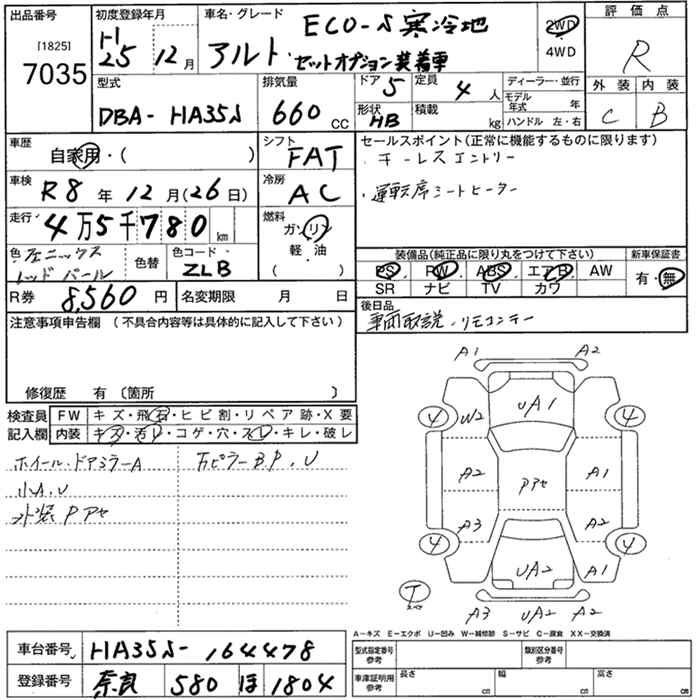 出品番号
[1825]
7035
初度登録年月
H
25 12月
車名・グレード
ECO-S 寒冷地
アルト・セットオプション装着車
2WD
・
4WD
評価点
R
外装 内装
C B
型式
DBA- HA35S
排気量
660 CC
ドア 5
形状 HB
定員 4人
積載 kg
ディーラー・並行
モデル年式 年
ハンドル 左・右
車歴
自家用・( )
シフト
FAT
車検
R8年 12月(26日)
冷房
AC
走行
4万5千780 km
燃料
ガソリン
軽・油
( )
色 フェニックス
レッドパール
色替
色コード
ZLB
R券 8,560円
名変期限 月 日
セールスポイント(正常に機能するものに限ります)
・キーレスエントリー
・運転席シートヒーター
装備品(純正品に限り丸をつけて下さい)
PS PW ABS エアB AW
SR ナビ TV カワ
新車保証書
有・無
後日品
車両取説・リモコンキー
注意事項申告欄(不具合内容等は具体的に記入して下さい)
修復歴 有(箇所 )
検査員
記入欄
FW キズ・飛石・ヒビ割・リペア跡・X要
内装 キズ・汚レ・コゲ・穴・スレ・キレ・破レ
ホイール・ドアミラーA
小A.U
外装Pアセ
左ピラーBP.U
A1 A2
UA1
4 W2 4
A2 Pアセ A1
A3 A2
4 4
UA2 A1
T
スペア
A3 UA2 A2
A―キズ E―エクボ U―凹み W―補修跡 S―サビ C―腐食 XX―交換済
車台番号 HA35S-164478
登録番号 奈良 580 ほ 1804
型式指定番号
参考
類別区分番号
参考
車庫証明用
参考
長さ cm
幅 cm
高さ cm